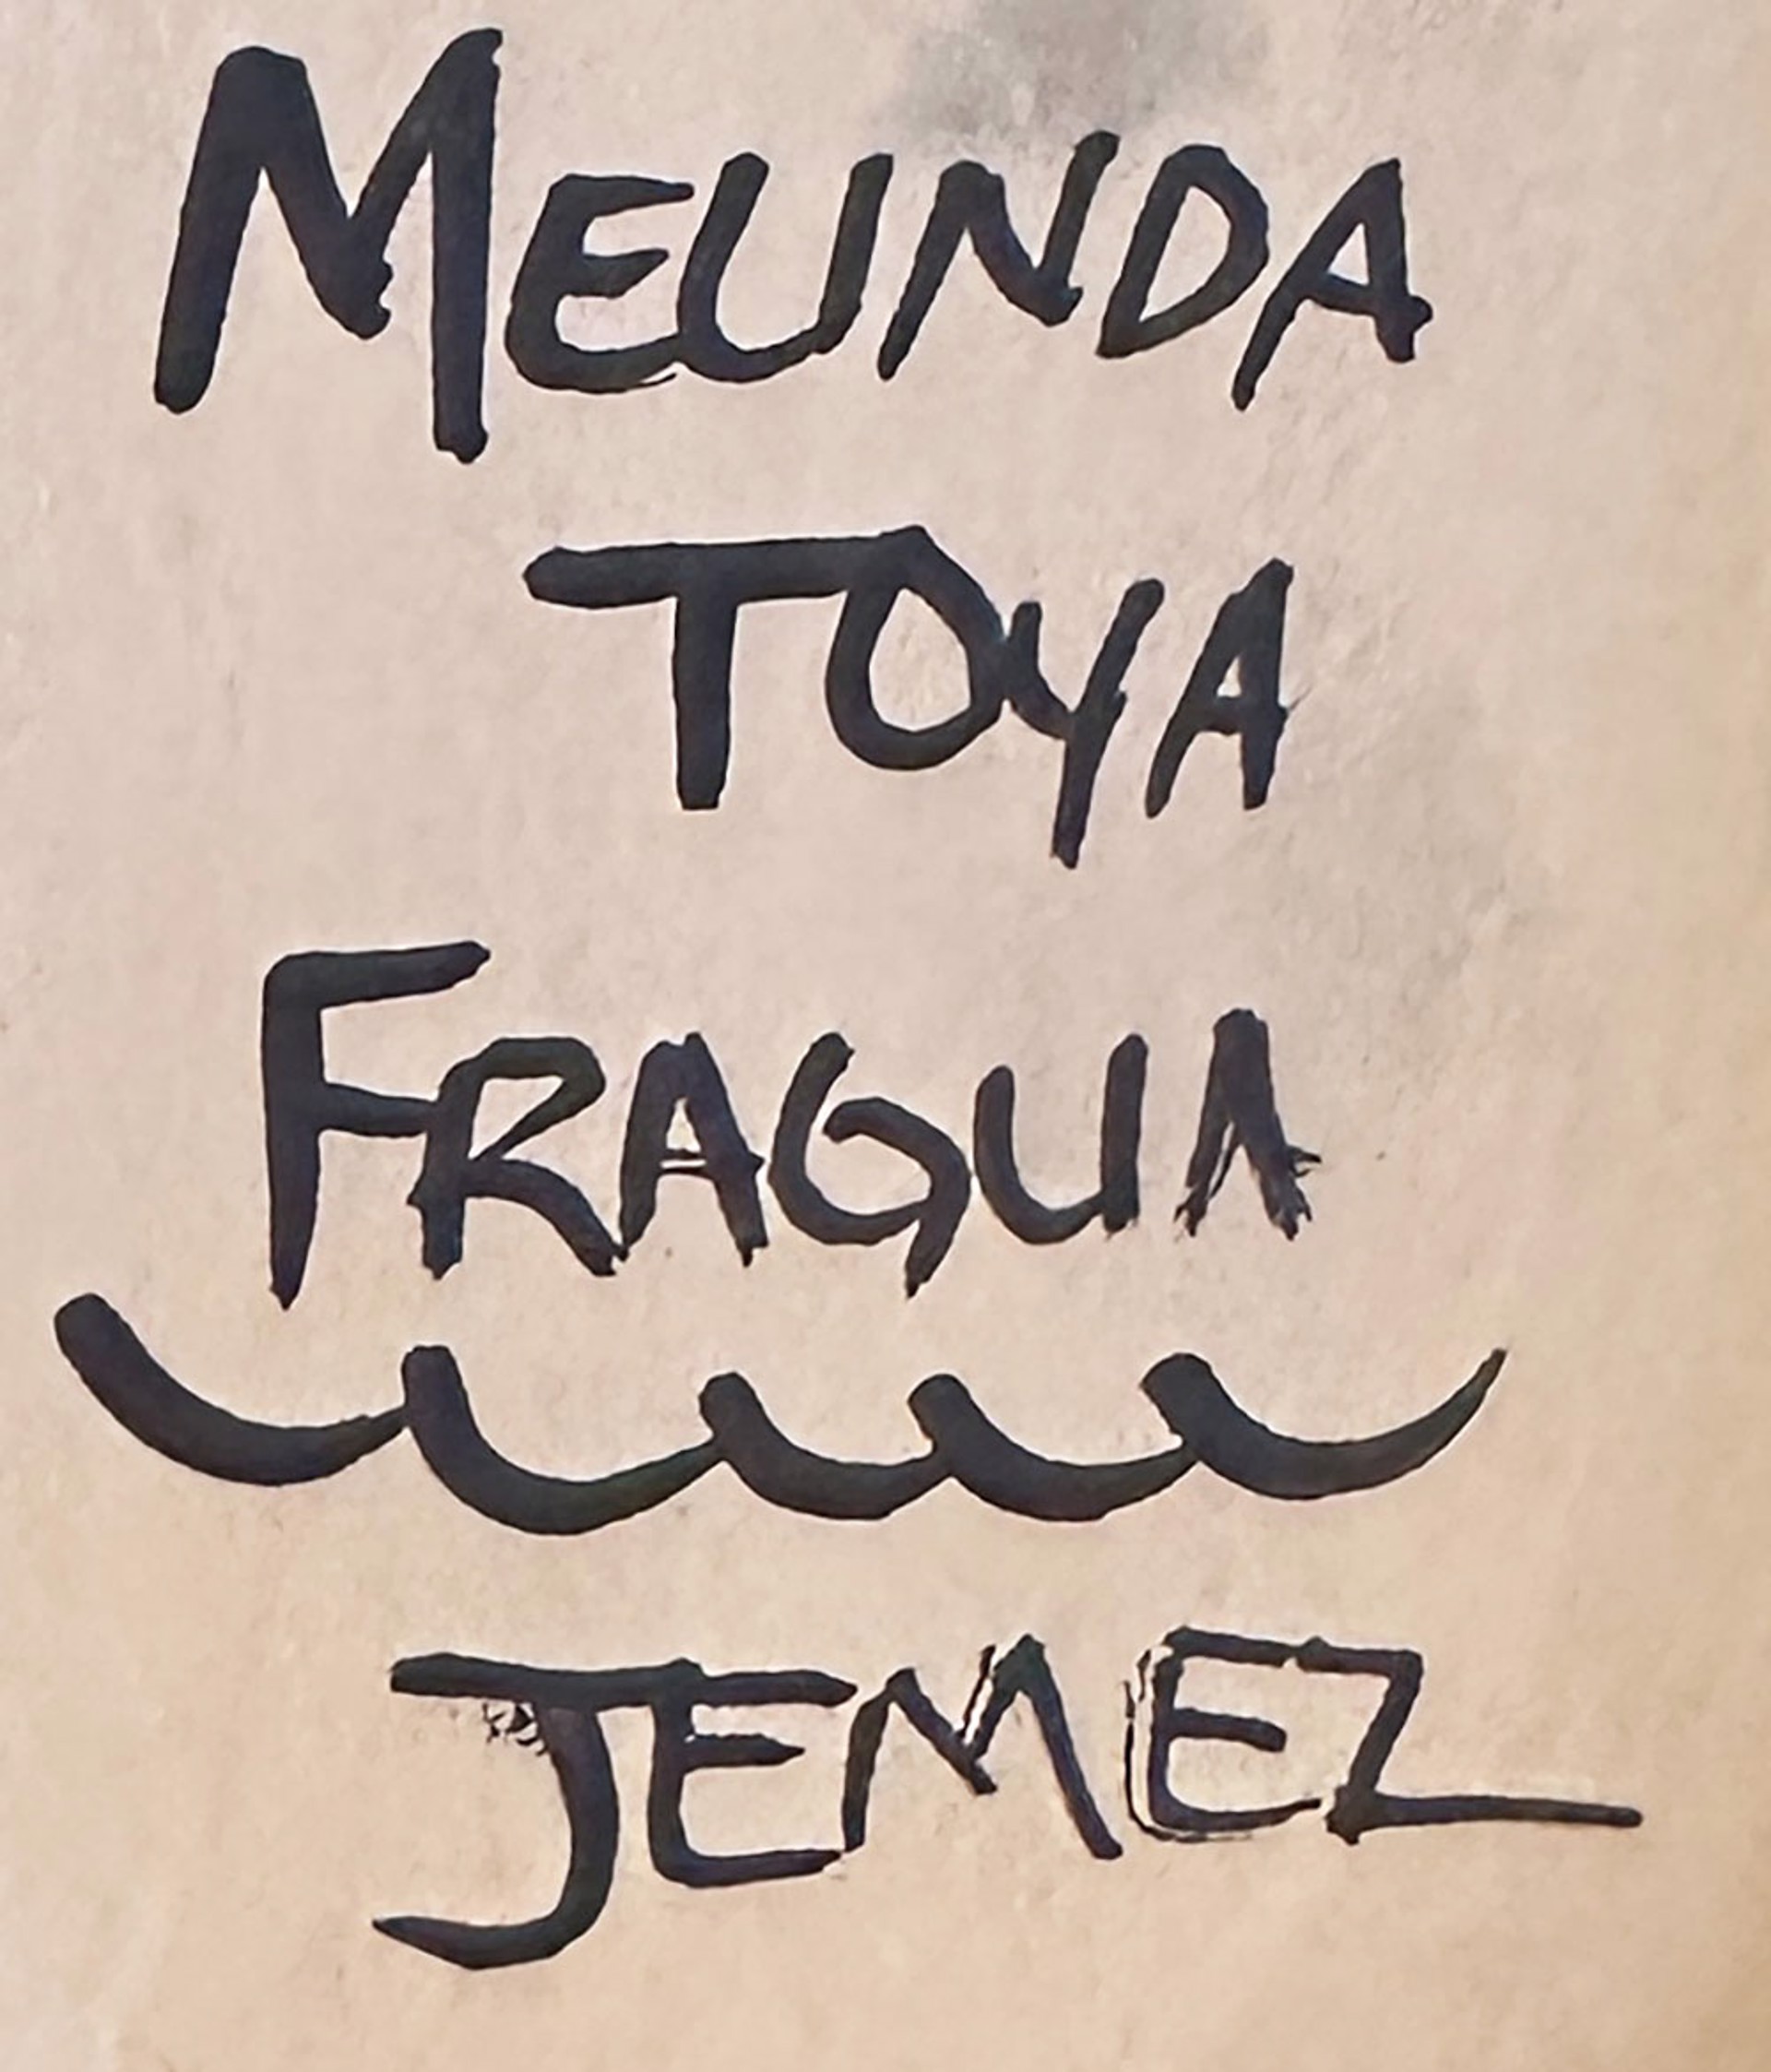 MELINDA
TOYA
FRAGUA
JEMEZ